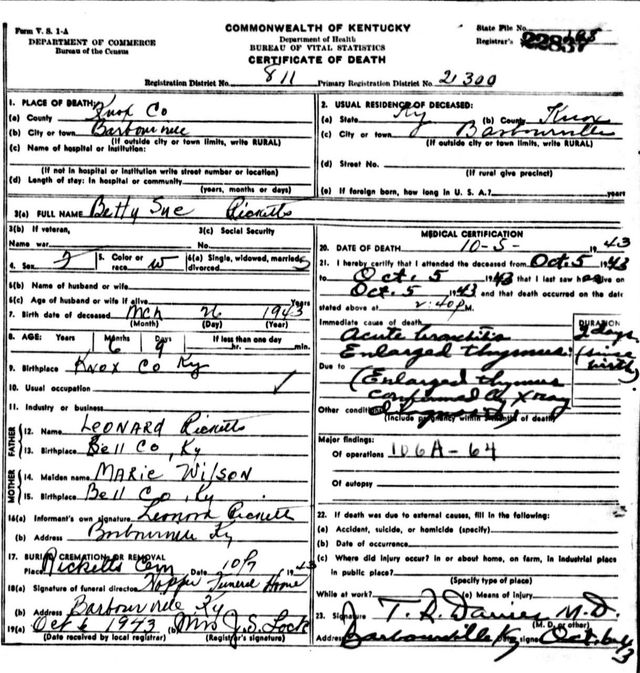 Form V. S. 1-A
DEPARTMENT OF COMMERCE
Bureau of the Census
COMMONWEALTH OF KENTUCKY
Department of Health
BUREAU OF VITAL STATISTICS
CERTIFICATE OF DEATH
State File No.
Registrar's 22837
Registration District No. 811 Primary Registration District No. 21300
1. PLACE OF DEATH:
(a) County Knox Co
(b) City or town Barbourville
(If outside city or town limits, write RURAL)
(c) Name of hospital or institution:
(If not in hospital or institution write street number or location)
(d) Length of stay: In hospital or community
(years, months or days)
2. USUAL RESIDENCE OF DECEASED:
(a) State Ky (b) County Knox
(c) City or town Barbourville
(If outside city or town limits, write RURAL)
(d) Street No.
(If rural give precinct)
(e) If foreign born, how long in U. S. A.? years
3(a) FULL NAME Betty Sue Ricketts
3(b) If veteran, 3(c) Social Security
Name war No.
4. Sex F 5. Color or race W 6(a) Single, widowed, married, divorced S
6(b) Name of husband or wife
6(c) Age of husband or wife if alive Years
7. Birth date of deceased Mch 26 1943
(Month) (Day) (Year)
8. AGE: Years Months Days If less than one day
6 9 hr. min.
9. Birthplace Knox Co Ky
10. Usual occupation
11. Industry or business
FATHER
12. Name LEONARD Ricketts
13. Birthplace Bell Co, Ky
MOTHER
14. Maiden name MARIE WILSON
15. Birthplace Bell Co, Ky
16(a) Informant's own signature Leonard Ricketts
(b) Address Barbourville Ky
17. BURIAL, CREMATION, OR REMOVAL
Place Ricketts Cem Date 10/7 1943
18(a) Signature of funeral director Hopper Funeral Home
(b) Address Barbourville Ky
19(a) Oct 6 1943 (b) Mrs J.S. Lock
(Date received by local registrar) (Registrar's signature)
MEDICAL CERTIFICATION
20. DATE OF DEATH 10-5- 1943
21. I hereby certify that I attended the deceased from Oct. 5 1943
to Oct. 5 1943 that I last saw alive on
Oct. 5 1943 and that death occurred on the date
stated above at 2:40 P m.
Immediate cause of death DURATION
Acute 2 days
Enlarged thymus (since birth)
Due to (Enlarged thymus
confirmed by X ray
Other conditions
(Include pregnancy within 3 months of death)
Major findings:
Of operations 106A-64
Of autopsy
22. If death was due to external causes, fill in the following:
(a) Accident, suicide, or homicide (specify)
(b) Date of occurrence
(c) Where did injury occur? In or about home, on farm, in industrial place
in public place?
(Specify type of place)
While at work? (e) Means of injury
23. Signature T. R. Davies M.D.
(M. D. or other)
Address Barbourville Ky signed Oct. 6 43